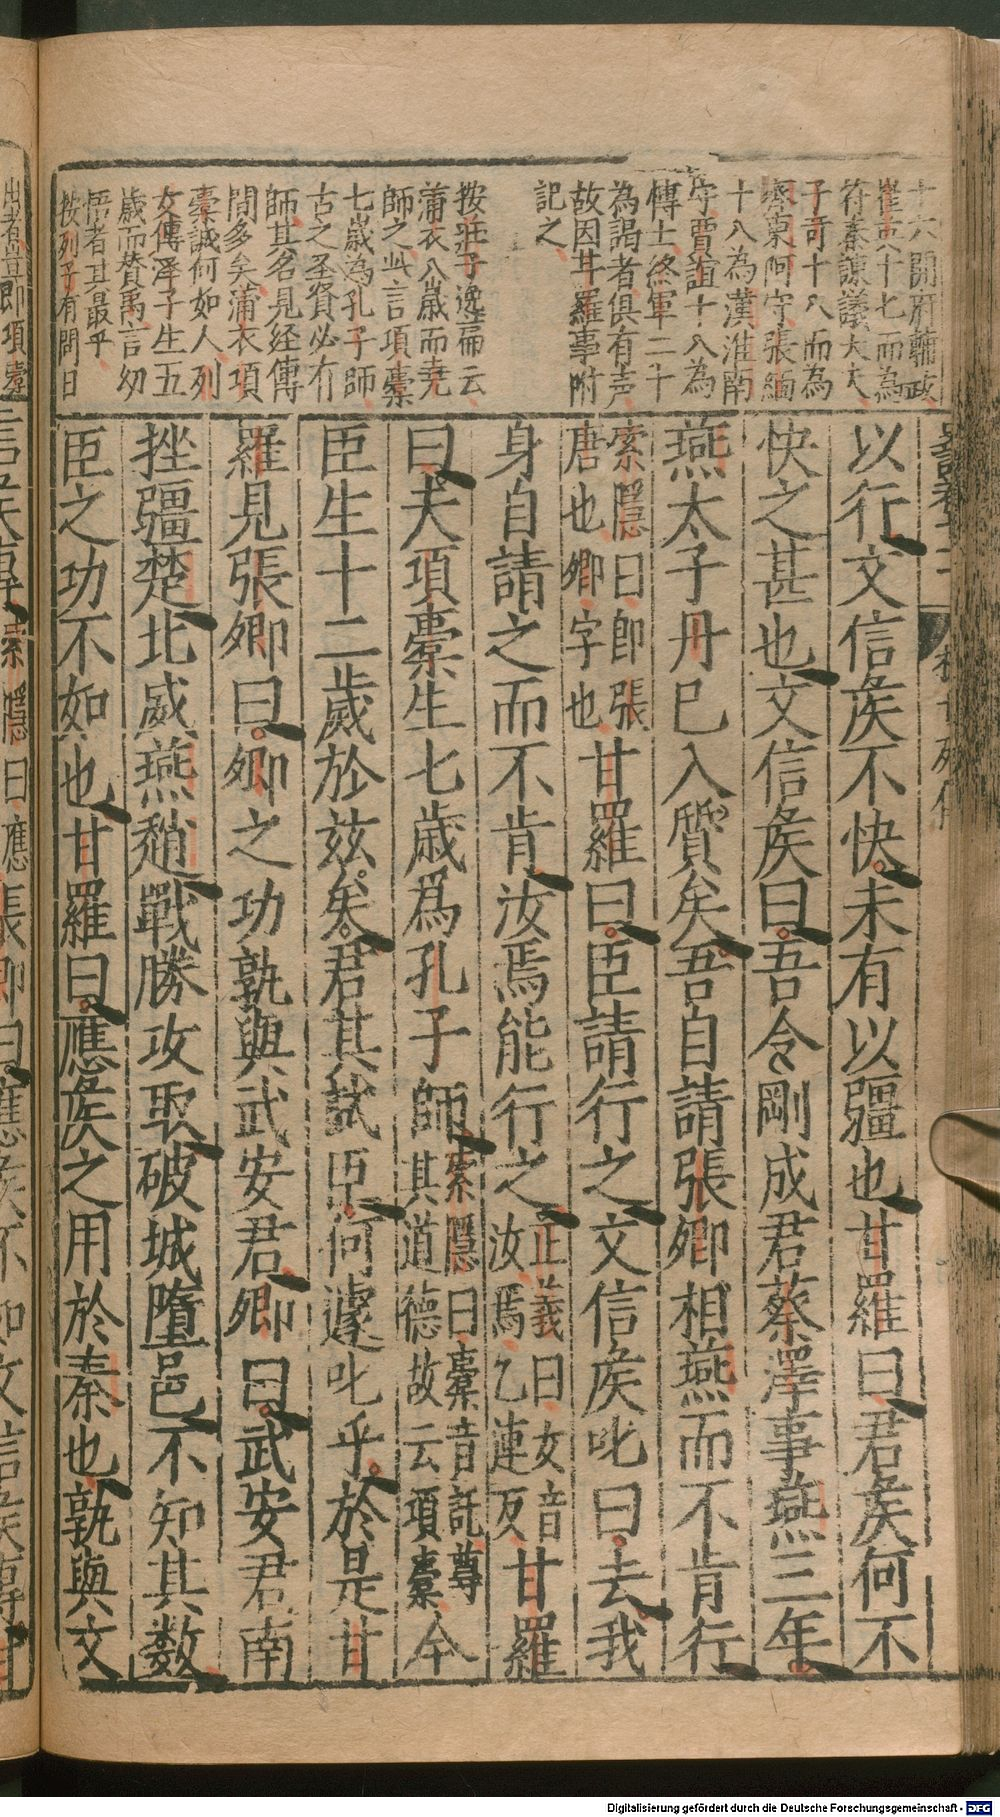 十六開府輔政
崔 十七而為
符秦諫議大夫
子奇十八而為
齊東阿守張緬
十八為漢淮南
守賈誼十八為
博士終軍二十
為謁者俱有声
故因甘羅事附
記之
按莊子逸篇云
蒲衣八歲而堯
師之此言項橐
七歲為孔子師
古之圣賢必有
師其名見経傳
間多矣蒲衣項
橐誠何如人列
女傳澤子生五
歲而賛禹言幼
悟者其最乎
按列子有問日
以行文信矦不快未有以彊也甘羅曰君矦何不
快之甚也文信矦曰吾令剛成君蔡澤事燕三年
燕太子丹已入質矣吾自請張卿相燕而不肯行
索隱曰卽張
唐也卿字也
甘羅曰臣請行之文信矦叱曰去我
身自請之而不肯汝焉能行之
正義曰女音
汝焉乙連反
甘羅
曰夫項橐生七歲爲孔子師
索隱曰橐音託尊
其道德故云項橐
今
臣生十二歲於茲矣君其試臣何遽叱乎於是甘
羅見張卿曰卿之功孰與武安君卿曰武安君南
挫彊楚北威燕趙戰勝攻取破城墮邑不知其数
臣之功不如也甘羅曰應矦之用於秦也孰與文
Digitalisierung gefördert durch die Deutsche Forschungsgemeinschaft - DFG